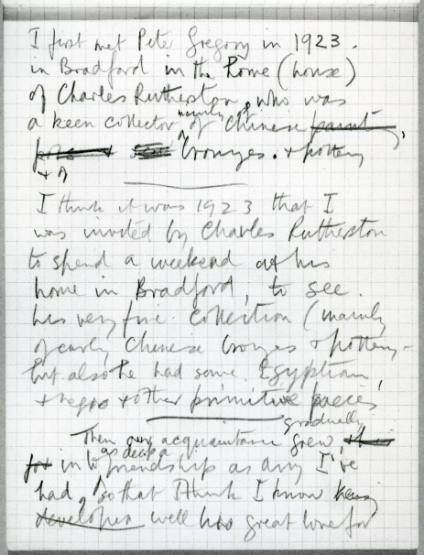 I first met Peter Gregory in 1923.
in Bradford in the home (house)
of Charles Rutherston, who was
a keen collector mainly of Chinese paint
bronzes. & pottery
& of
I think it was 1923 that I
was invited by Charles Rutherston
to spend a weekend at his
home in Bradford, to see.
his very fine collection (mainly
of early Chinese bronzes & pottery –
but also he had some Egyptian,
& negro & other primitive pieces
gradually
Then our acquaintance grew,
as deep a
into friendship as any I've
had, so that I think I know
developed well his great love for